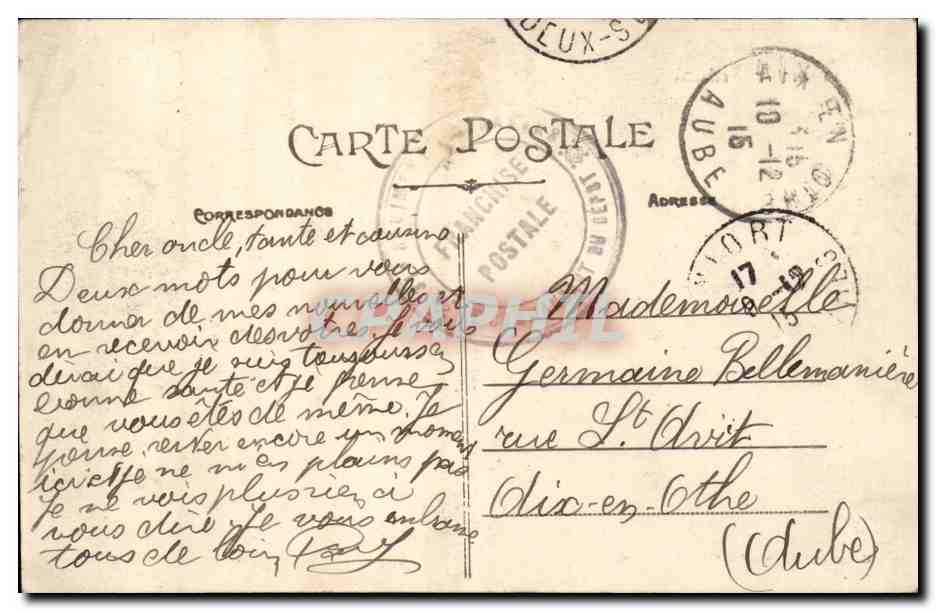 DEUX-S
CARTE POSTALE
CORRESPONDANCE
ADRESSE
AIX EN OTHE
18-12
15
AUBE
FRANCHISE
POSTALE
DÉPOT
NIORT
17
15
CPAPHIL
Cher oncle, tante et cousine
Deux mots pour vous
donner de mes nouvelles et
en recevoir des votres. Je vous
dirai que je suis toujours en
bonne santé et je pense
que vous êtes de même. Je
pense rester encore un moment
ici et je ne m'en plains pas
Je ne vois plus rien à
vous dire. Je vous embrasse
tous de loin
Mademoiselle
Germaine Bellemanière
rue St Avit
Aix-en-Othe
(Aube)